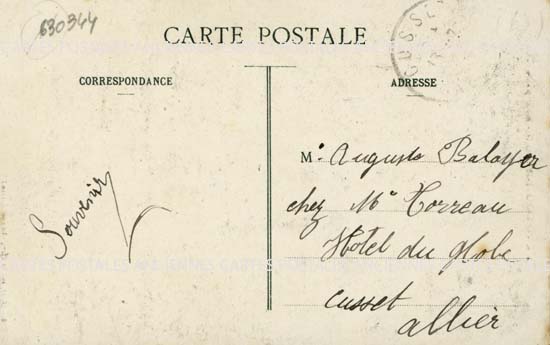 630344
CARTE POSTALE
CORRESPONDANCE
ADRESSE
CUSSE
Souvenir
Mr. Auguste Balayer
chez Mr Torreau
Hotel du globe
cusset
allier